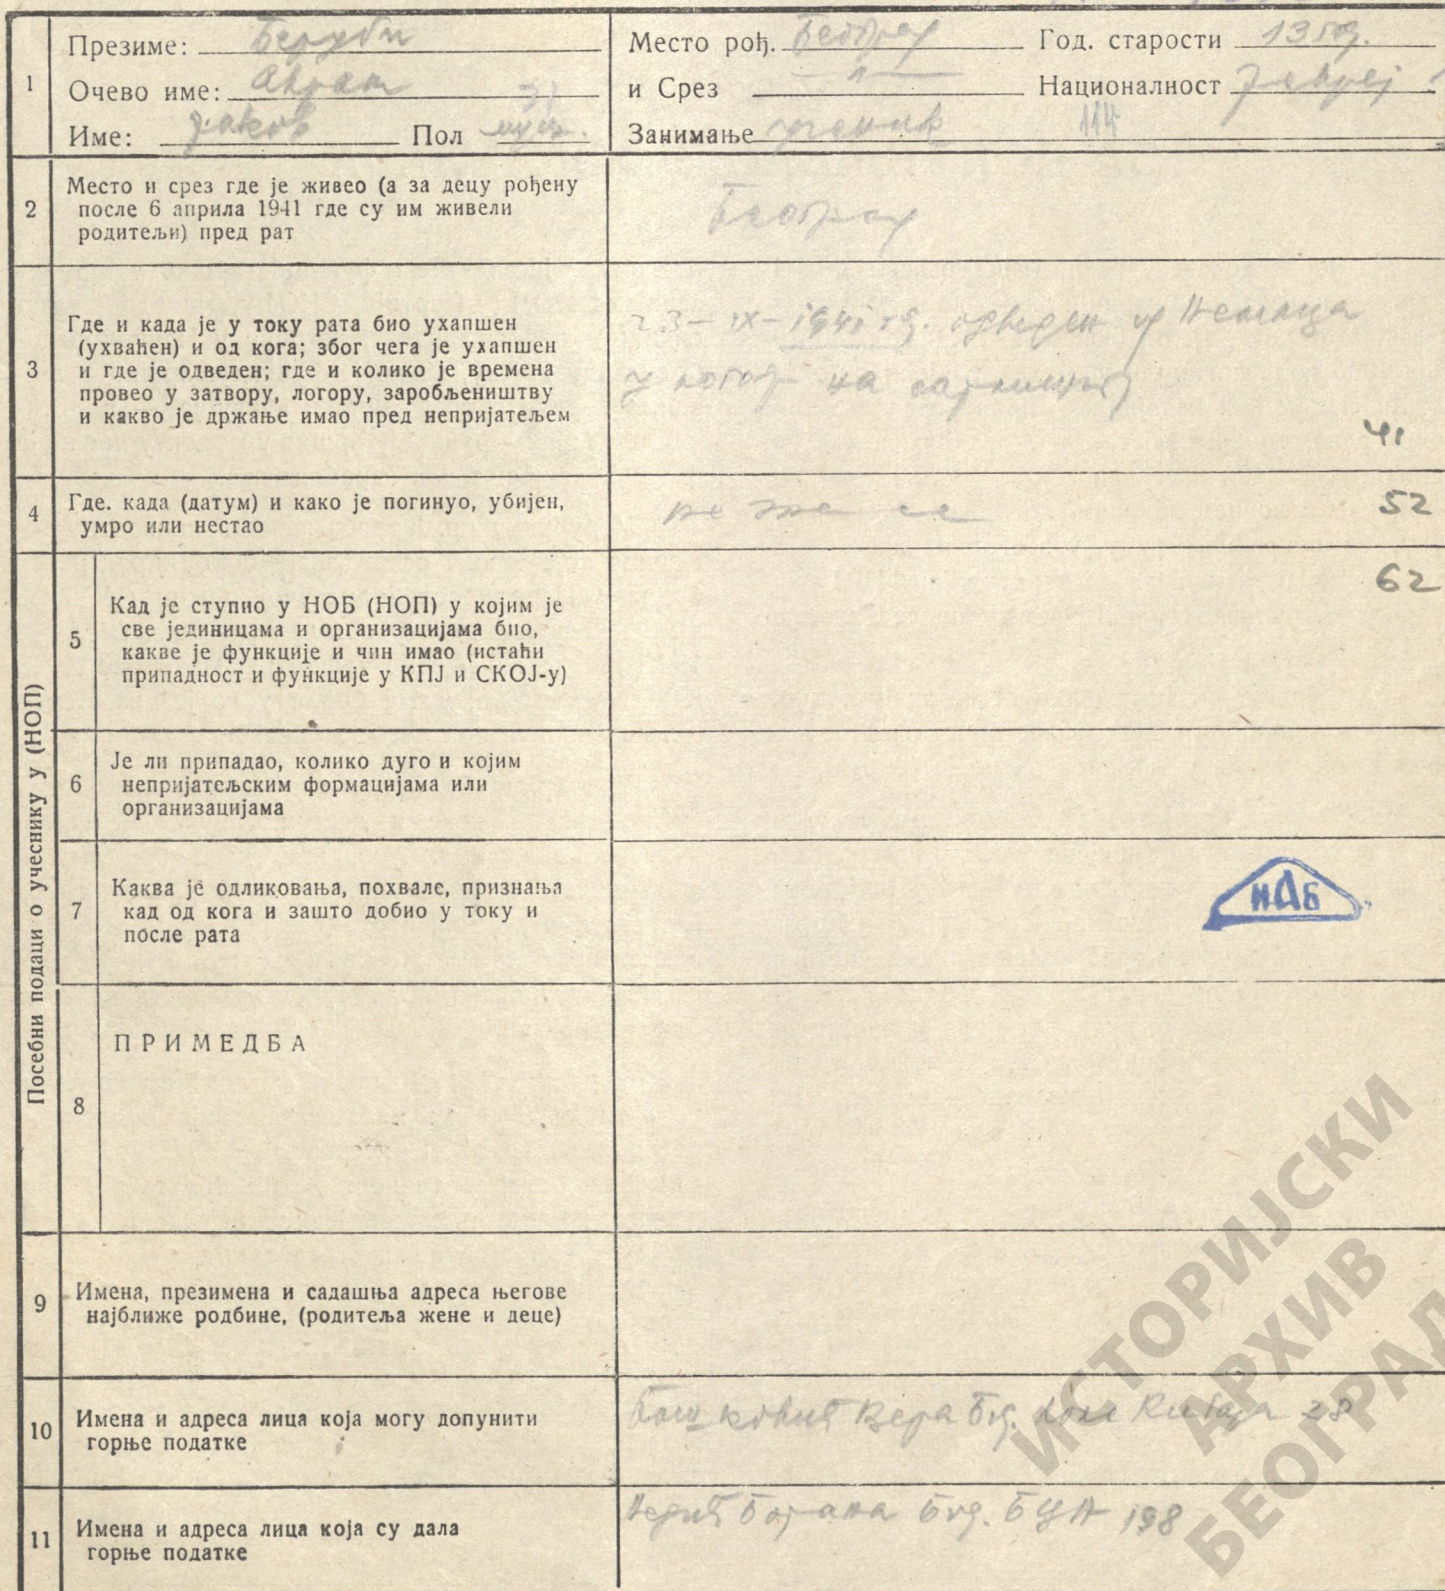 1
Презиме: Беруби
Очево име: Аврам
Име: Јаков Пол муш.
Место рођ. Београд Год. старости 13 год.
и Срез Националност Јевреј
Занимање ученик 114
2
Место и срез где је живео (а за децу рођену
после 6 априла 1941 где су им живели
родитељи) пред рат
Београд
3
Где и када је у току рата био ухапшен
(ухваћен) и од кога; због чега је ухапшен
и где је одведен; где и колико је времена
провео у затвору, логору, заробљеништву
и какво је држање имао пред непријатељем
23-IX-1941 г. одведен од Немаца
у логор на сајмишту
41
4
Где. када (датум) и како је погинуо, убијен,
умро или нестао
не зна се
52
Посебни подаци о учеснику у (НОП)
5
Кад је ступио у НОБ (НОП) у којим је
све јединицама и организацијама био,
какве је функције и чин имао (истаћи
припадност и функције у КПЈ и СКОЈ-у)
62
6
Је ли припадао, колико дуго и којим
непријатељским формацијама или
организацијама
7
Каква је одликовања, похвале, признања
кад од кога и зашто добио у току и
после рата
ИАБ
8
ПРИМЕДБА
9
Имена, презимена и садашња адреса његове
најближе родбине, (родитеља жене и деце)
10
Имена и адреса лица која могу допунити
горње податке
Бошковић Вера Бгд. 28
11
Имена и адреса лица која су дала
горње податке
Бојана Бгд. 198
ИСТОРИЈСКИ
АРХИВ
БЕОГРАД